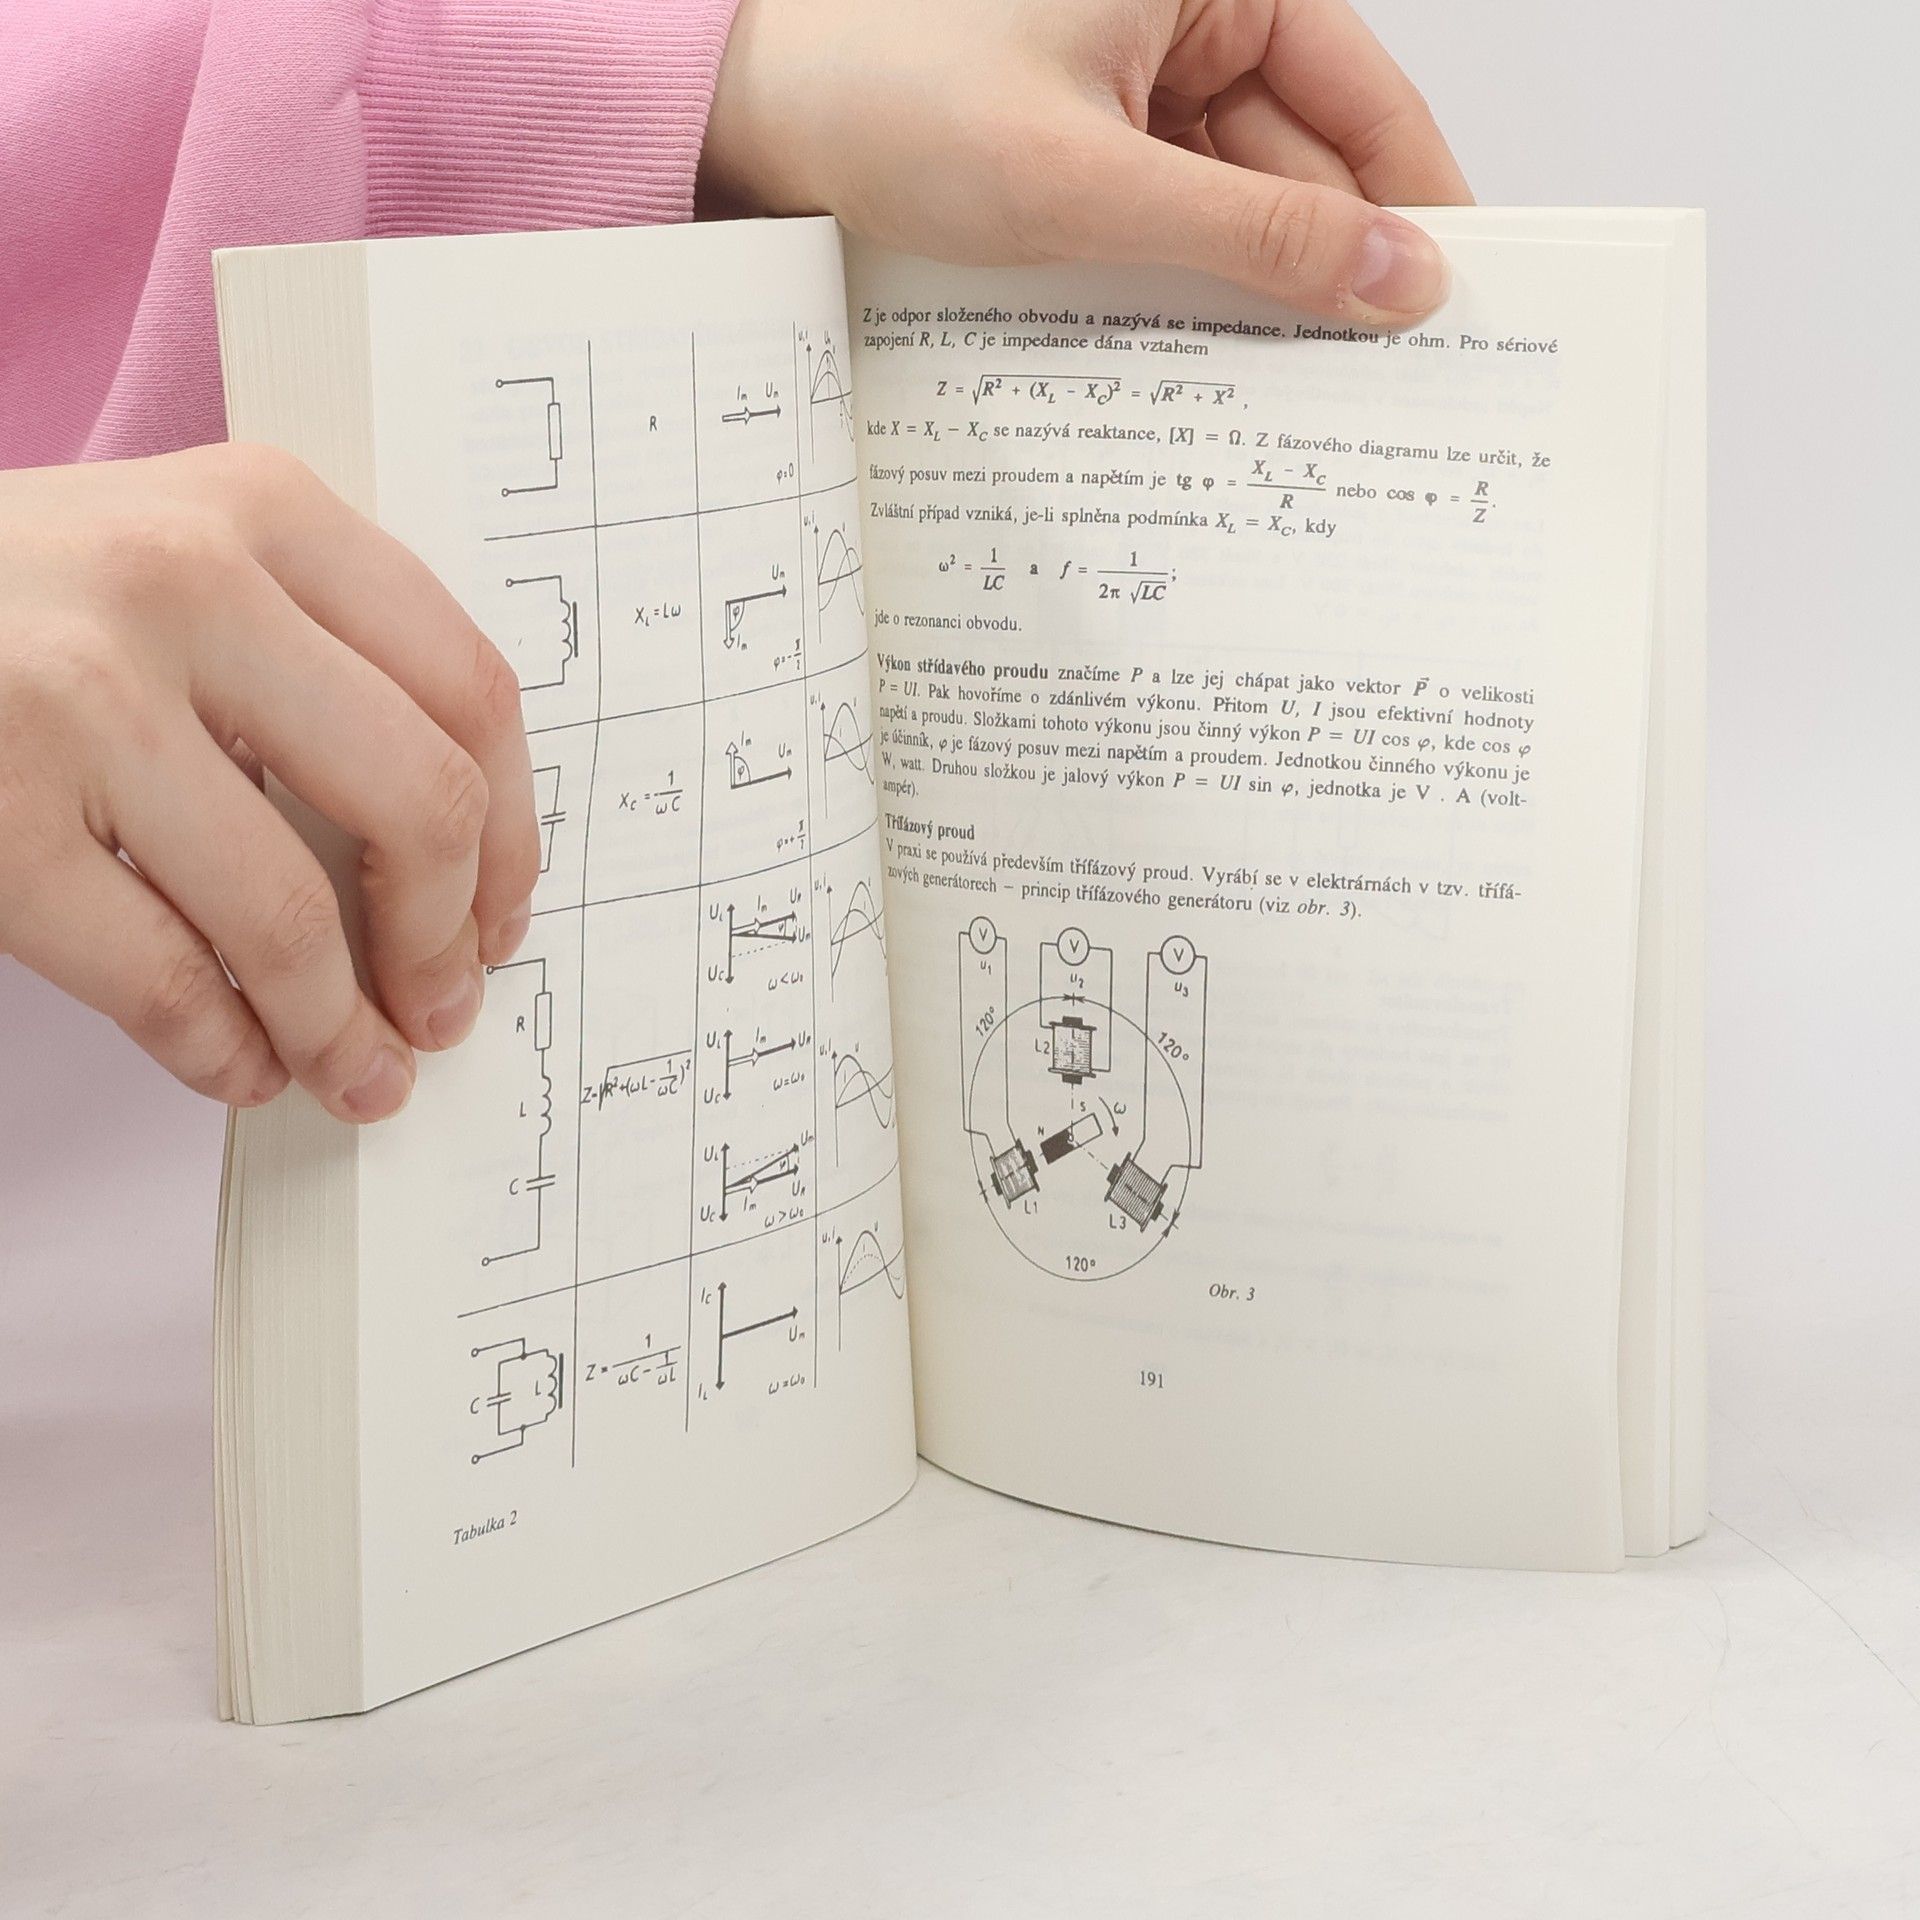 R
Iₘ Uₘ
u,i
φ=0
X_L = Lω
Uₘ
φ
Iₘ
φ=-π/2
u,i
X_C = 1/ωC
Iₘ
φ
Uₘ
φ=+π/2
u,i
R
L
C
Z=√R²+(ωL-1/ωC)²
U_L Iₘ U_R
φ Uₘ
U_C ω<ω₀
u,i
U_L Iₘ U_R
U_C ω=ω₀
u,i u
U_L Uₘ
φ
U_R
U_C Iₘ ω>ω₀
C L
Z = 1/(ωC - 1/ωL)
I_C
Uₘ
I_L ω=ω₀
u,i u
Tabulka 2
Z je odpor složeného obvodu a nazývá se impedance. Jednotkou je ohm. Pro sériové
zapojení R, L, C je impedance dána vztahem
Z = √R² + (X_L − X_C)² = √R² + X² ,
kde X = X_L − X_C se nazývá reaktance, [X] = Ω. Z fázového diagramu lze určit, že
fázový posuv mezi proudem a napětím je tg φ = (X_L − X_C)/R nebo cos φ = R/Z.
Zvláštní případ vzniká, je-li splněna podmínka X_L = X_C, kdy
ω² = 1/LC a f = 1/(2π √LC);
jde o rezonanci obvodu.
Výkon střídavého proudu značíme P a lze jej chápat jako vektor P⃗ o velikosti
P = UI. Pak hovoříme o zdánlivém výkonu. Přitom U, I jsou efektivní hodnoty
napětí a proudu. Složkami tohoto výkonu jsou činný výkon P = UI cos φ, kde cos φ
je účinník, φ je fázový posuv mezi napětím a proudem. Jednotkou činného výkonu je
W, watt. Druhou složkou je jalový výkon P = UI sin φ, jednotka je V . A (volt-
ampér).
Třífázový proud
V praxi se používá především třífázový proud. Vyrábí se v elektrárnách v tzv. třífá-
zových generátorech – princip třífázového generátoru (viz obr. 3).
V V V
u₁ u₂ u₃
120° 120°
L2
S ω
N
L1 L3
120°
Obr. 3
191